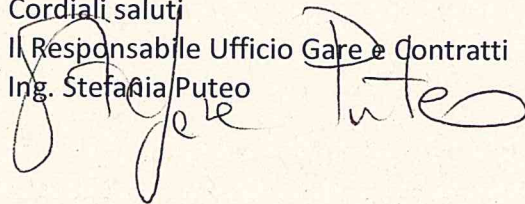 Cordiali saluti
Il Responsabile Ufficio Gare e Contratti
Ing. Stefania Puteo
Puteo